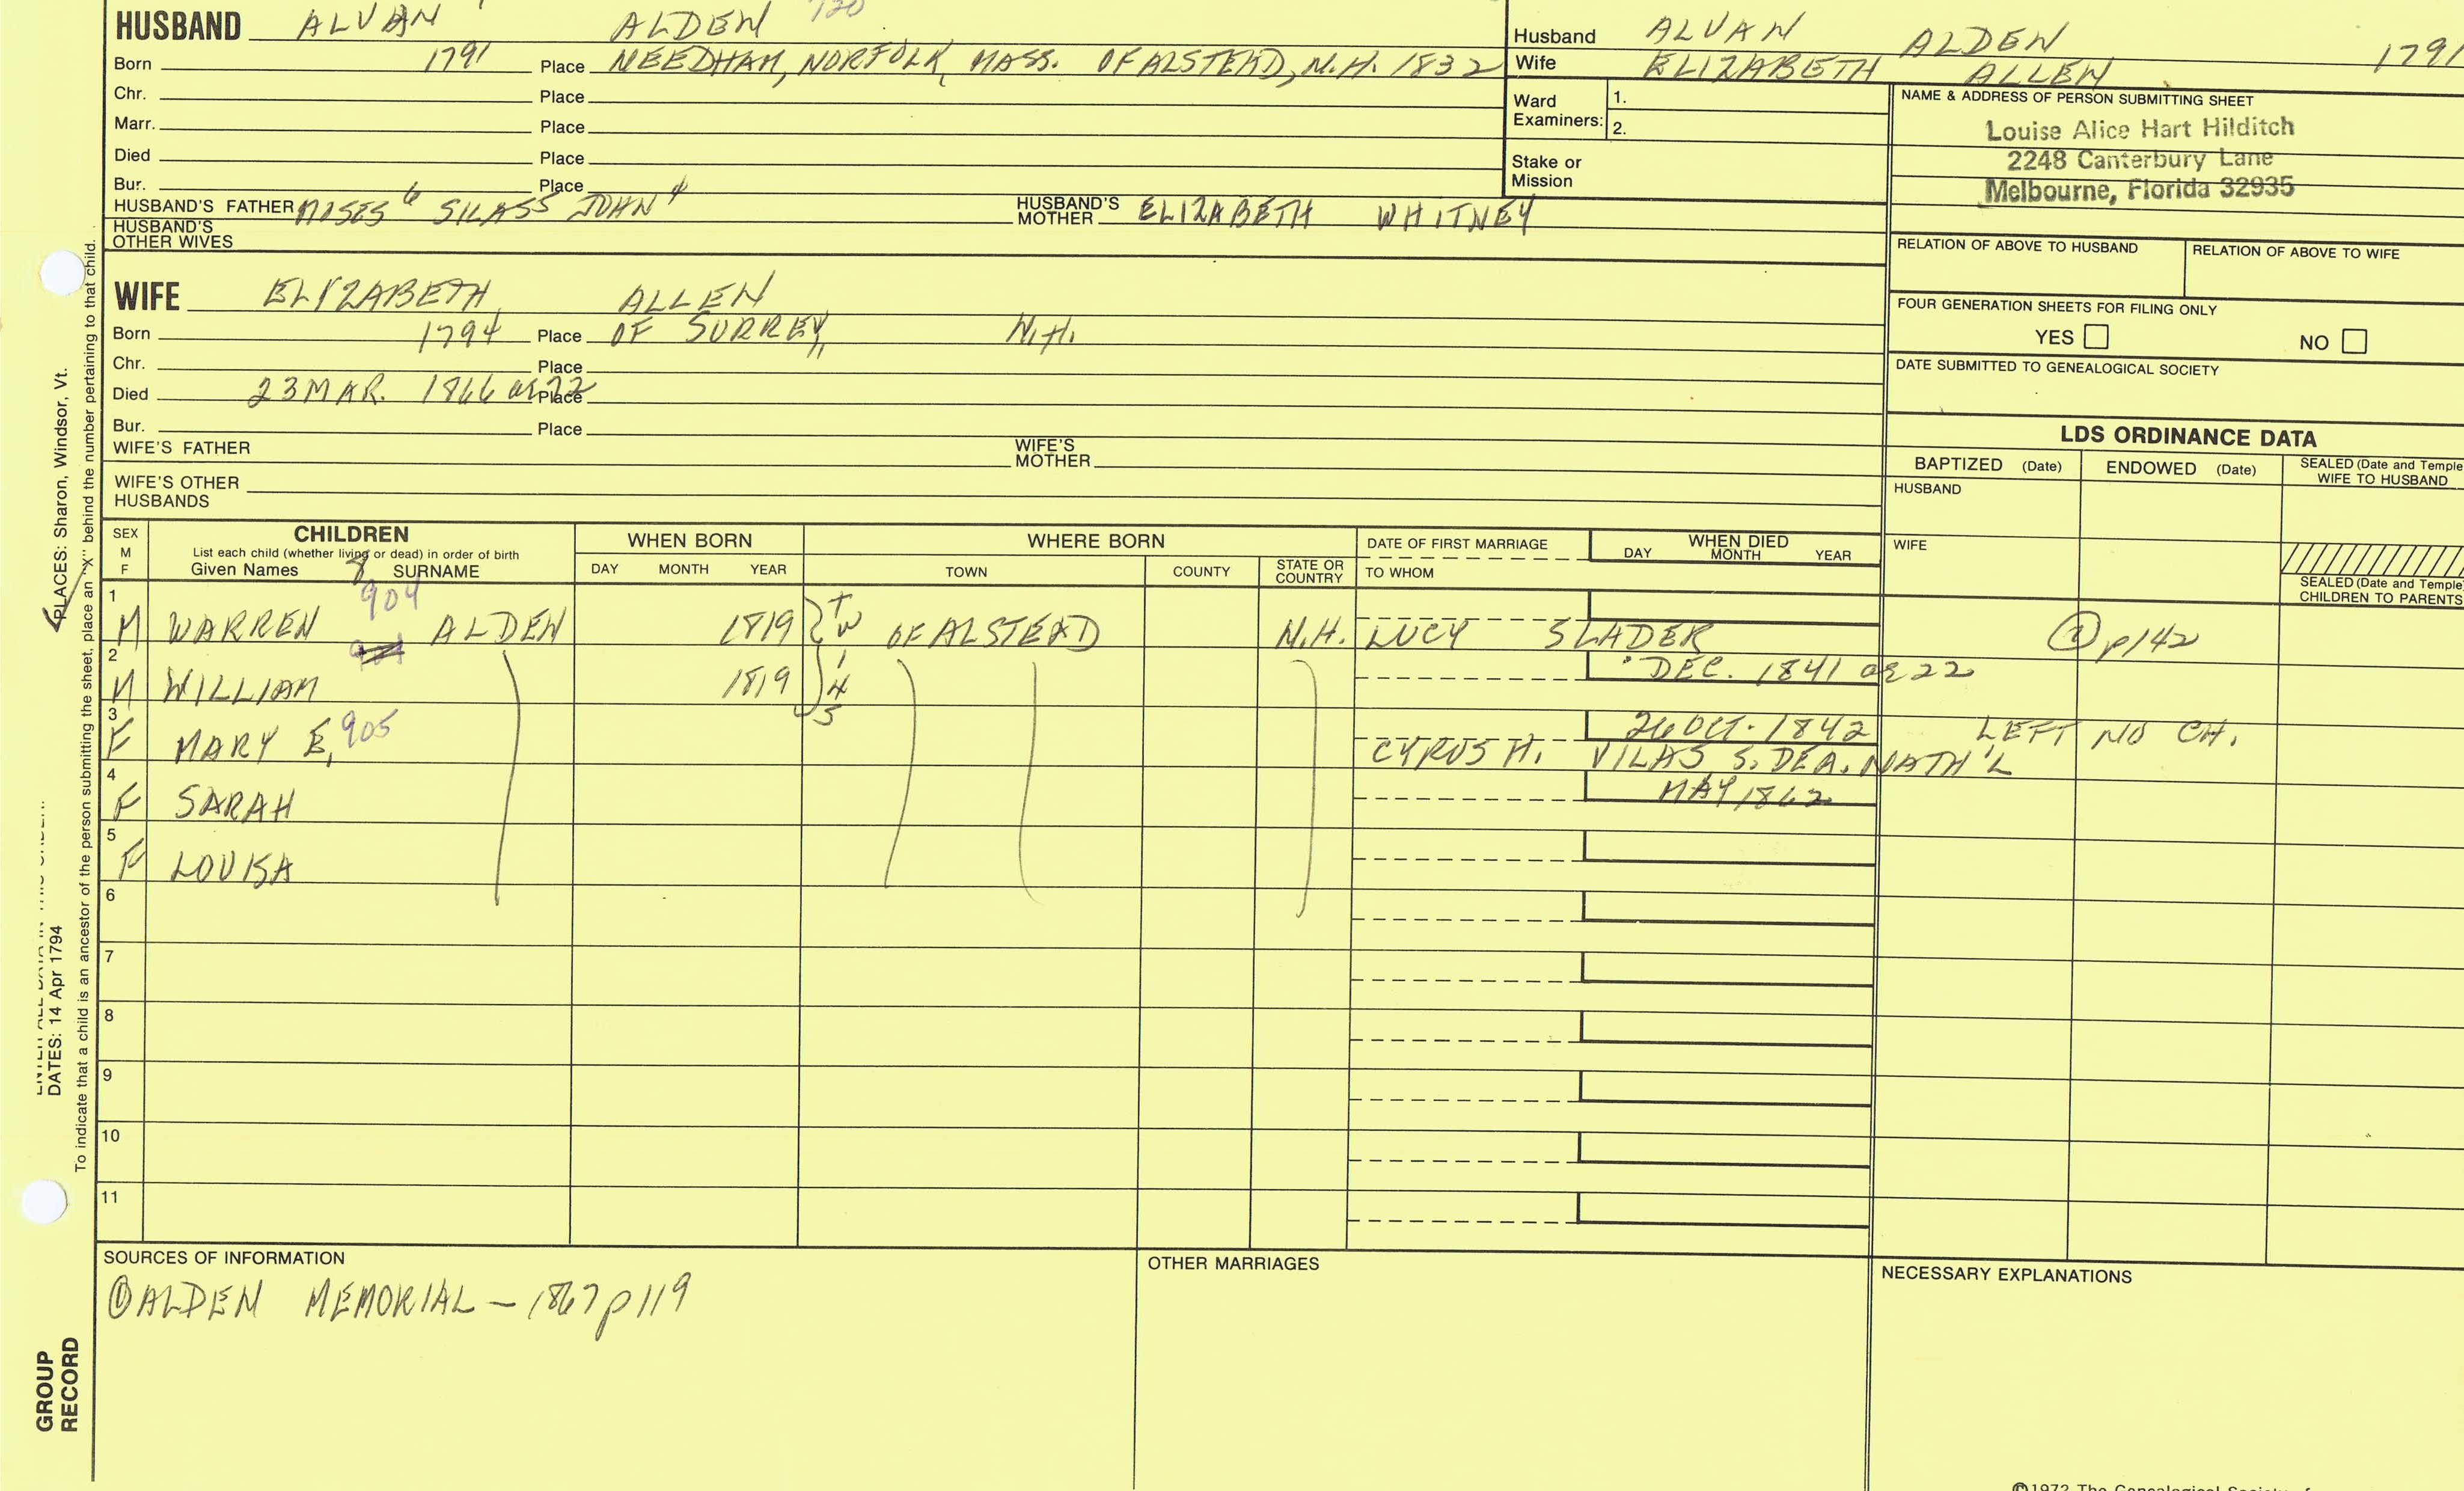 HUSBAND ALVAN ALDEN 720
Born 1791 Place NEEDHAM, NORFOLK, MASS. OF ALSTEAD, N.H. 1832
Chr. Place
Marr. Place
Died Place
Bur. Place
HUSBAND'S FATHER MOSES 6 SILAS 5 JOHN 4 HUSBAND'S MOTHER ELIZABETH WHITNEY
HUSBAND'S OTHER WIVES
WIFE ELIZABETH ALLEN
Born 1794 Place OF SURREY, N.H.
Chr. Place
Died 23 MAR. 1866 ae 72 Place
Bur. Place
WIFE'S FATHER WIFE'S MOTHER
WIFE'S OTHER HUSBANDS
Husband ALVAN ALDEN 1791
Wife ELIZABETH ALLEN
Ward Examiners: 1.
2.
Stake or Mission
NAME & ADDRESS OF PERSON SUBMITTING SHEET
Louise Alice Hart Hilditch
2248 Canterbury Lane
Melbourne, Florida 32935
RELATION OF ABOVE TO HUSBAND RELATION OF ABOVE TO WIFE
FOUR GENERATION SHEETS FOR FILING ONLY
YES NO
DATE SUBMITTED TO GENEALOGICAL SOCIETY
LDS ORDINANCE DATA
BAPTIZED (Date) ENDOWED (Date) SEALED (Date and Temple
WIFE TO HUSBAND
HUSBAND
WIFE
SEALED (Date and Temple)
CHILDREN TO PARENTS
SEX M F
CHILDREN
List each child (whether living or dead) in order of birth
Given Names 8 SURNAME
WHEN BORN
DAY MONTH YEAR
WHERE BORN
TOWN COUNTY STATE OR COUNTRY
DATE OF FIRST MARRIAGE
TO WHOM
WHEN DIED
DAY MONTH YEAR
1 M WARREN 904 ALDEN 1819 TW OF ALSTEAD N.H. LUCY SLADER ② p142
2 M WILLIAM 1819 INS DEC. 1841 ae 22
3 F MARY E, 905 26 OCT. 1842 LEFT NO CH.
CYRUS H. VILAS S. DEA. NATH'L
4 F SARAH MAY 1862
5 F LOUISA
6
7
8
9
10
11
SOURCES OF INFORMATION
① ALDEN MEMORIAL – 1867 p 119
OTHER MARRIAGES
NECESSARY EXPLANATIONS
PLACES: Sharon, Windsor, Vt.
DATES: 14 Apr 1794
To indicate that a child is an ancestor of the person submitting the sheet, place an "X" behind the number pertaining to that child.
GROUP
RECORD